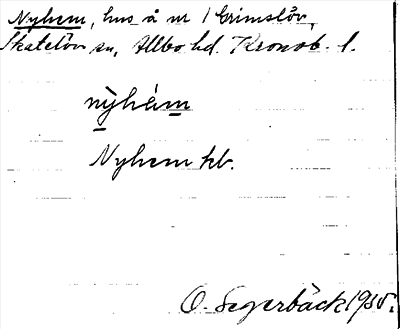 Nyhem, hus å nr 1 Grimslöv,
Skatelöv sn, Allbo hd. Kronob. l.
nỳhém
Nyhem kb.
O. Segerbäck 1935.